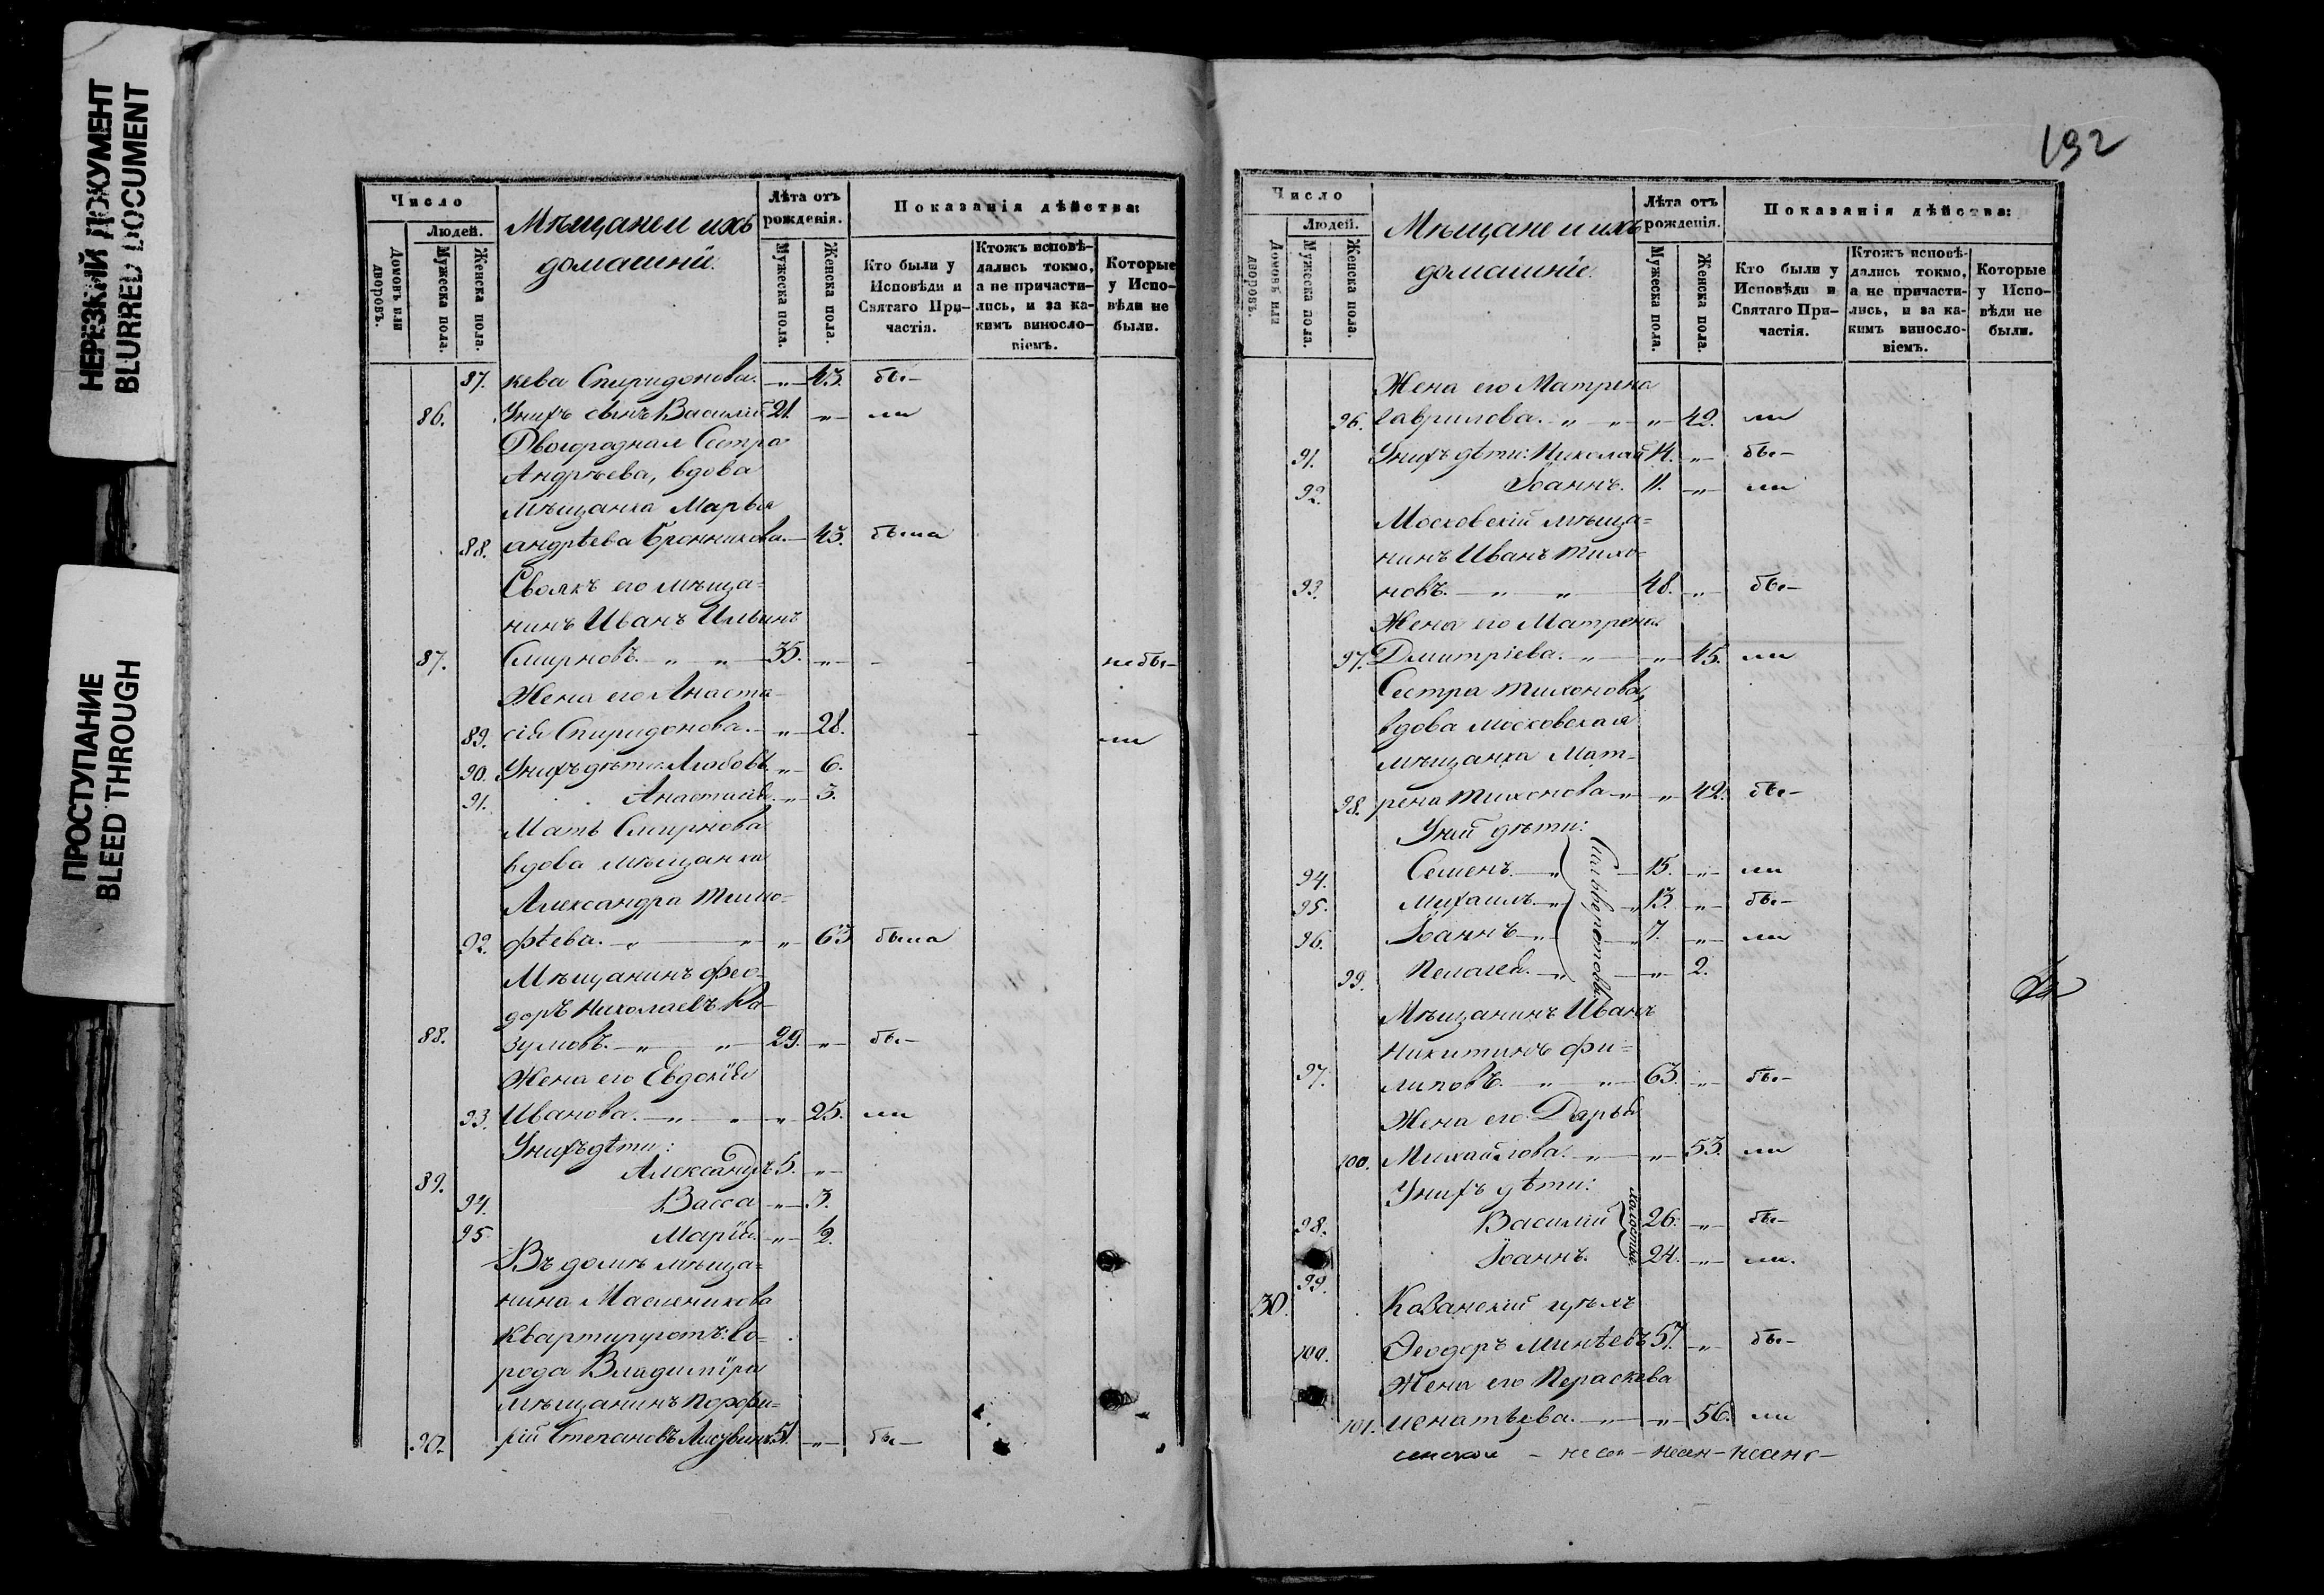 НЕРЕЗКИЙ ДОКУМЕНТ
BLURRED DOCUMENT
ПРОСТУПАНИЕ
BLEED THROUGH
Число
Людей.
Домовъ или дворовъ.
Мужеска пола.
Женска пола.
Мѣщане и ихъ
домашніе.
Лѣта отъ рожденія.
Мужеска пола.
Женска пола.
Показанія дѣйства:
Кто были у Исповѣди и Святаго При-частія.
Ктожъ исповѣ-дались токмо, а не причасти-лись, и за ка-кимъ винословіемъ.
Которые у Испо-вѣди не были.
87. кева Спиридонова. „ 43. бы-
86. У нихъ сынъ Василій 21. „ ли
Двоюродная Сестра
Андрѣева, вдова
мѣщанка Марья
88. андрѣева Бронникова. 45. была
Своякъ его мѣща=
нинъ Иванъ Ильинъ
87. Смирновъ. „ „ 35. „ - - небы-
Жена его Анаста-
89. сія Спиридонова. „ 28. - ли
90. У нихъ дѣти: Любовь „ 6.
91. Анастасія. „ 3.
Мать Смирнова
вдова мѣщанка
Александра Тимо-
92. фѣева. „ „ „ 63 была
Мѣщанинъ Фео-
доръ Николаевъ Ра-
88. зумовъ. „ „ 29. „ бы-
Жена его Евдокія
93. Иванова. „ „ „ 25. ли
У нихъ дѣти:
89. Александръ 5. „
94. Васса „ 3.
95 Марія. „ ½.
Въ домѣ мѣща=
нина Масленикова
квартируютъ: го-
рода Владиміра
мѣщанинъ Порфи-
90. рій Степановъ 51. „ бы-
192
Число
Людей.
Домовъ или дворовъ.
Мужеска пола.
Женска пола.
Мѣщане и ихъ
домашніе.
Лѣта отъ рожденія.
Мужеска пола.
Женска пола.
Показанія дѣйства:
Кто были у Исповѣди и Святаго При-частія.
Ктожъ исповѣ-дались токмо, а не причасти-лись, и за ка-кимъ винословіемъ.
Которые у Испо-вѣди не были.
Жена его Матрена
96. Гаврилова. „ „ „ 42. ли
91. У нихъ дѣти: Николай 14. „ бы-
92. Іоаннъ. 11. „ ли
Московскій мѣща=
нинъ Иванъ Тихо-
93. новъ. „ „ 48. „ бы-
Жена его Матрена
97. Дмитріева. „ „ 45. ли
Сестра Тихонова,
вдова московская
мѣщанка Мат-
98. рена Тихонова „ „ 42. бы-
У ней дѣти:
94. Семенъ. „ 15. „ ли
95. Михаилъ. „ „ 13. „ бы-
96. Іоаннъ „ „ 7. „ ли
99. Пелагея. „ „ 2.
Мѣщанинъ Иванъ
Никитинъ Фи=
97. липовъ. „ „ 63. „ бы-
Жена его Дарья
100. Михайлова. „ „ 53. ли
У нихъ дѣти:
98. Василій 26. „ бы-
холостые.
99. Іоаннъ. 24. „ ли.
30. Казанскій
100. Ѳеодоръ Минѣевъ 57. „ бы-
Жена его Параскева
101. Игнатьева. „ „ 56. ли